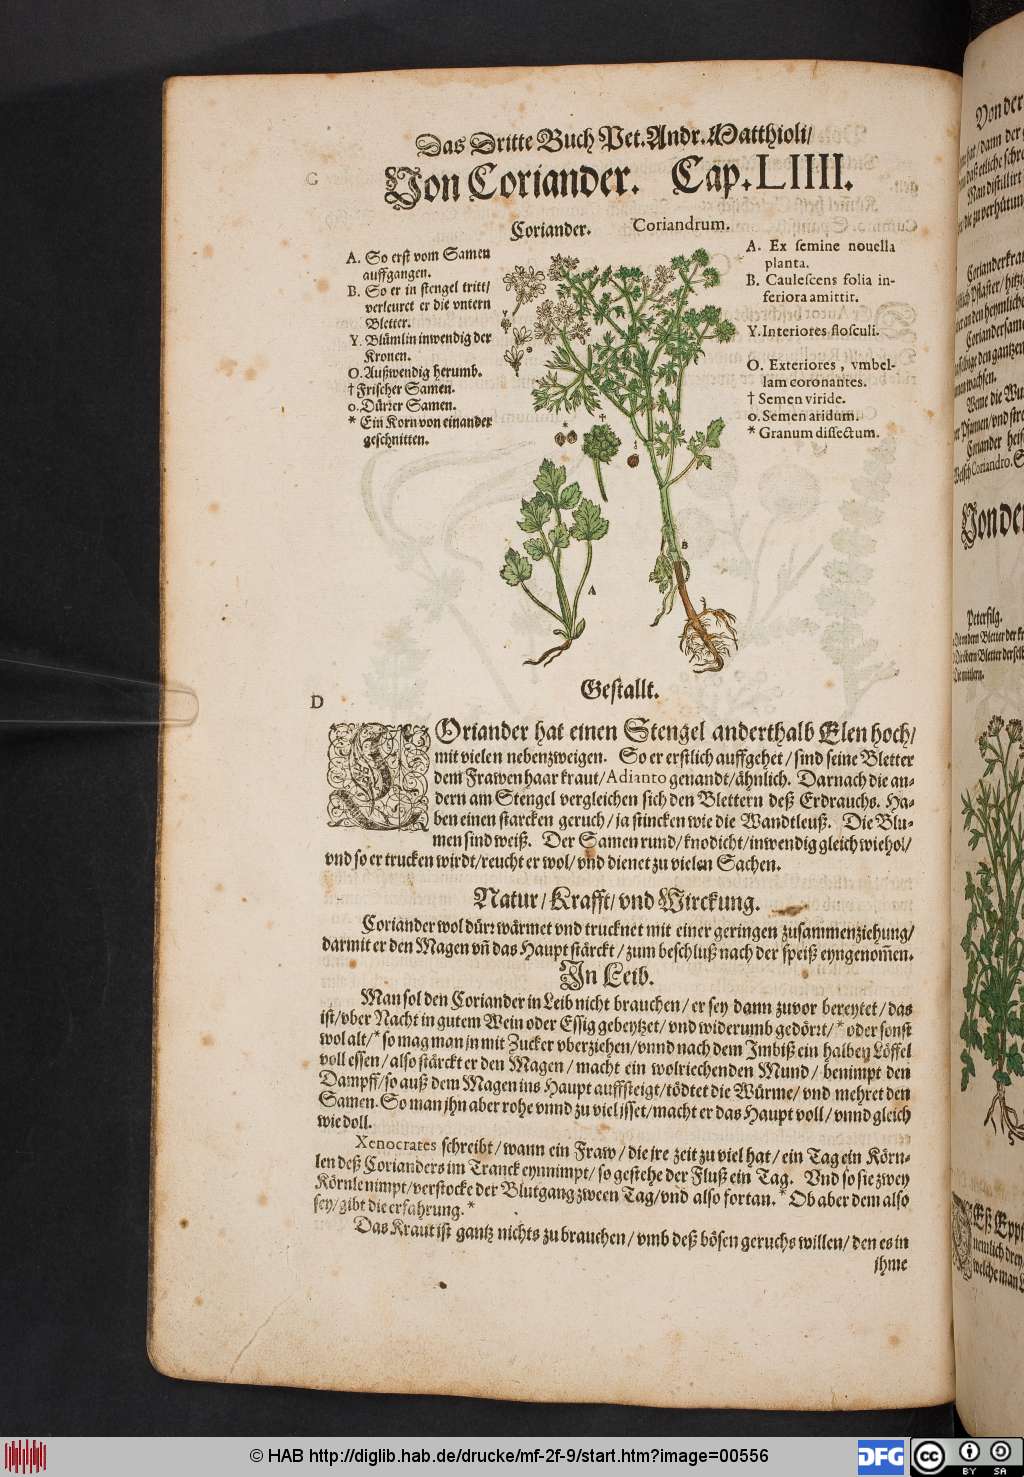 Das Dritte Buch Pet. Andr. Matthioli/
Von Coriander. Cap. LIIII.
G
Coriander. Coriandrum.
A. So erst vom Samen
auffgangen.
B. So er in stengel tritt/
verleuret er die vntern
Bletter.
Y. Blümlin inwendig der
Kronen.
O. Außwendig herumb.
† Frischer Samen.
o. Dürrer Samen.
* Ein Korn von einander
geschnitten.
A. Ex semine nouella
planta.
B. Caulescens folia in-
feriora amittit.
Y. Interiores flosculi.
O. Exteriores, vmbel-
lam coronantes.
† Semen viride.
o. Semen aridum.
* Granum dissectum.
A
B
Gestallt.
D
COriander hat einen Stengel anderthalb Elen hoch/
mit vielen nebenzweigen. So er erstlich auffgehet/ sind seine Bletter
dem Frawen haar kraut/ Adianto genandt/ ähnlich. Darnach die an-
dern am Stengel vergleichen sich den Blettern deß Erdrauchs. Ha-
ben einen starcken geruch/ ja stincken wie die Wandtleuß. Die Blu-
men sind weiß. Der Samen rund/ knodicht/ inwendig gleich wie hol/
vnd so er trucken wirdt/ reucht er wol/ vnd dienet zu vielen Sachen.
Natur/ Krafft/ vnd Wirckung.
Coriander wol dürr wärmet vnd trucknet mit einer geringen zusammenziehung/
darmit er den Magen vn̄ das Haupt stärckt/ zum beschluß nach der speiß eyngenom̄en.
In Leib.
Man sol den Coriander in Leib nicht brauchen/ er sey dann zuvor bereytet/ das
ist/ vber Nacht in gutem Wein oder Essig gebeytzet/ vnd widerumb gedörrt/ * oder sonst
wol alt/ * so mag man jn mit Zucker vberziehen/ vnnd nach dem Imbiß ein halben Löffel
voll essen/ also stärckt er den Magen/ macht ein wolriechenden Mund/ benimpt den
Dampff/ so auß dem Magen ins Haupt auffsteigt/ tödtet die Würme/ vnd mehret den
Samen. So man jhn aber rohe vnnd zu viel isset/ macht er das Haupt voll/ vnnd gleich
wie doll.
Xenocrates schreibt/ wann ein Fraw/ die jre zeit zu viel hat/ ein Tag ein Körn-
len deß Corianders im Tranck eynnimpt/ so gestehe der Fluß ein Tag. Vnd so sie zwey
Körnle nimpt/ verstocke der Blutgang zween Tag/ vnd also fortan. * Ob aber dem also
sey/ gibt die erfahrung. *
Das Kraut ist gantz nichts zu brauchen/ vmb deß bösen geruchs willen/ den es in
jhme
Von der
Man distillirt
Corianderkraut
Coriandersamen
Coriander heißt
Welsch Coriandro.
Von der
Petersilg.
© HAB http://diglib.hab.de/drucke/mf-2f-9/start.htm?image=00556
DFG
cc
BY SA